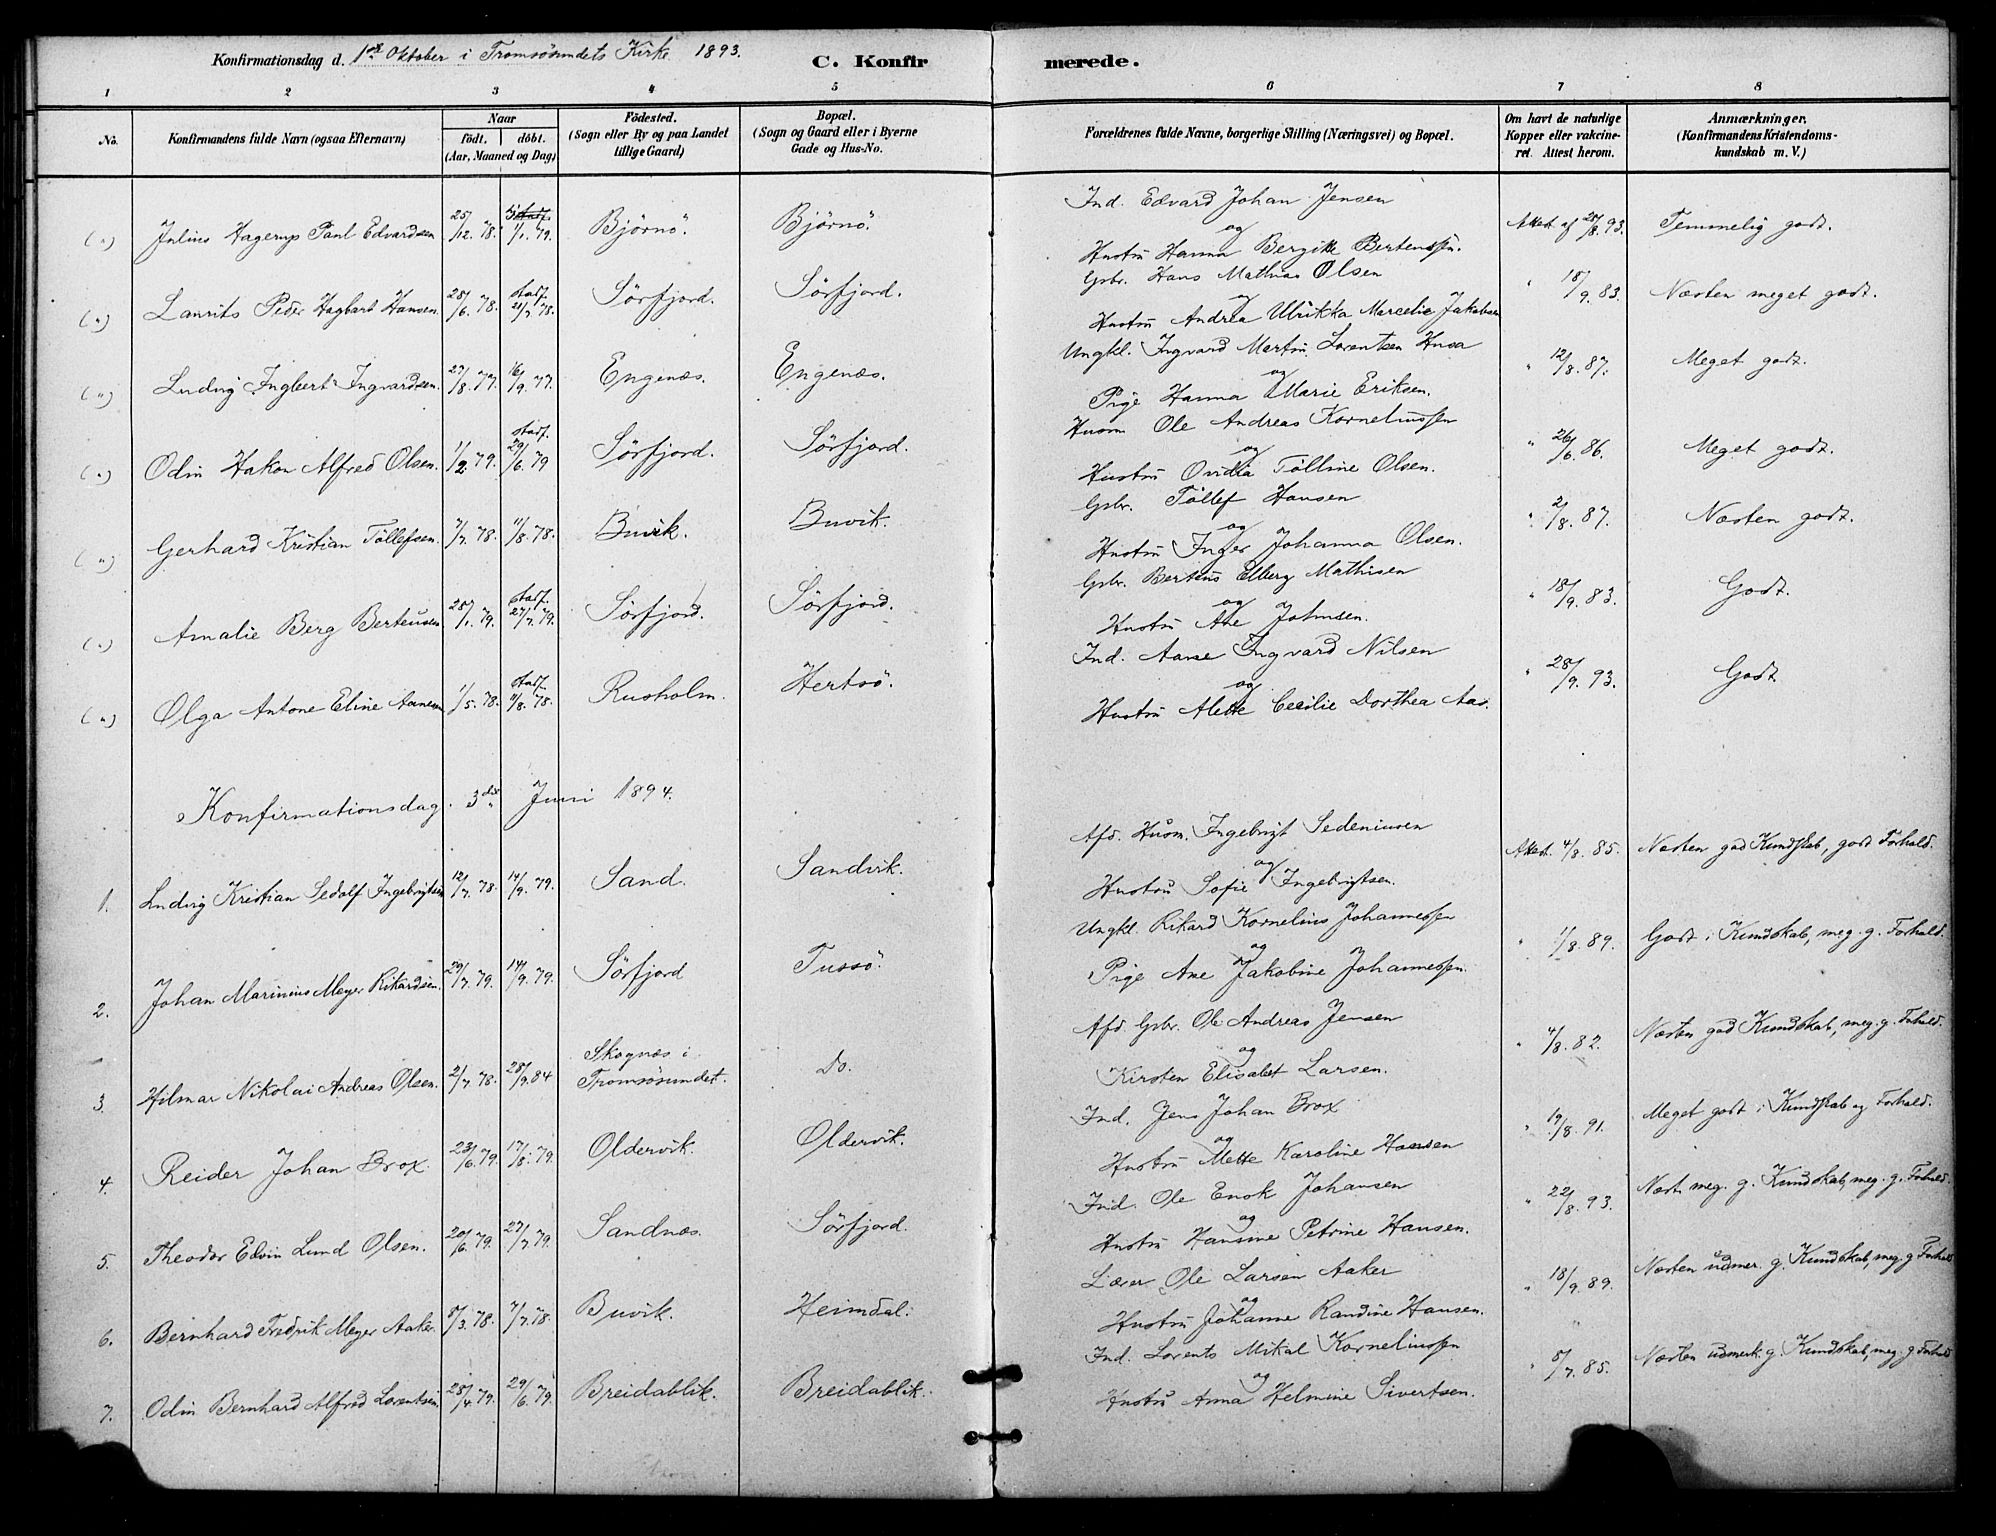 Konfirmationsdag d. 1ste Oktober i Tromsøsundets Kirke 1893.
C. Konfirmerede.
1 2 3 4 5 6 7 8
No. | Konfirmandens fulde Navn (ogsaa Efternavn) | Naar födt. döbt. (Aar, Maaned og Dag) | Födested. (Sogn eller By og paa Landet tillige Gaard) | Bopæl. (Sogn og Gaard eller i Byerne Gade og Hus-No. | Forældrenes fulde Navne, borgerlige Stilling (Næringsvei) og Bopæl. | Om havt de naturlige Kopper eller vakcineret. Attest herom. | Anmærkninger. (Konfirmandens Kristendomskundskab m. V.)
(") Julius Hagerup Paul Edvardsen 25/12.78. 1/1.79. Björnö. Björnö. Ind. Edvard Johan Jensen
og
Hustru Hanna Bergitte Bertenssen. Attest af 28/8.93. Temmelig godt.
(") Laurits Peder Hagbart Hansen. 28/6.78. stadf. 21/7.78. Sörfjord. Sörfjord. Gbr. Hans Mathias Olsen
og
Hustru Andrea Ulrikka Marcelie Jakobsen " 18/9.83. Næsten meget godt.
(") Ludvig Ingbert Ingvardsen. 27/8.77. 16/9.77. Engenæs. Engenæs. Ungkl. Ingvard Martin Lorentsen Husa
og
Pige Hanna Marie Eriksen. " 12/8.87. Meget godt.
(") Odin Hakon Alfred Olsen. 1/2.79. stadf. 29/6.79 Sörfjord. Sörfjord. Husm Ole Andreas Kornelinssen
og
Hustru Ovidia Tölline Olsen. " 26/6.86. Meget godt.
(") Gerhard Kristian Töllefsen. 7/7.78. 11/8.78. Buvik. Buvik. Gbr. Töllef Hansen
og
Hustru Inger Johanna Olsen. " 2/8.87. Næsten godt.
(") Amalie Berg Berteusen 28/1.79. stadf. 27/7.79. Sörfjord. Sörfjord. Gbr. Berteus Elberg Mathisen
og
Hustru Ane Johnsen. " 18/9.83. Godt.
(") Olga Antone Eline Aanesen 1/5.78. stadf. 11/8.78. Rusholm. Hertsö. Ind. Aane Ingvard Nilsen
og
Hustru Alette Cecilie Dorthea Aas. " 28/9.93. Godt
Konfirmationsdag. 3die Juni 1894.
1. Ludvig Kristian Sedolf Ingebrigtsen 12/7.78. 14/9.79. Sand. Sandvik. Afd. Husm. Ingebrigt Sedeniusen
og
Hustru Sofie Ingebrigtsen. Attest. 4/8.85. Næsten god Kundskab, godt Forhold.
2. Johan Marinius Meyer Rikardsen. 29/7.79. 14/9.79. Sörfjord Tussö. Ungkl. Rikard Kornelius Johannessen
og
Pige Ane Jakobine Johannessen. " 1/8.89. Godt i Kundskab, meg. g. Forhold.
3. Hilmar Nikolai Andreas Olsen. 2/7.78. 28/9.84 Skognæs i Tromsösundet. Do. Afd. Gbr. Ole Andreas Jensen
og
Kirsten Elisabet Larsen. " 4/8.82. Næsten god Kundskab, meg. g. Fohold.
4. Reider Johan Brox. 23/6.79. 17/8.79. Oldervik. Oldervik. Ind. Jens Johan Brox
og
Hustru Mette Karoline Hansen " 19/8.91. Meget godt i Kundskab og Forhold.
5. Theodor Edvin Lund Olsen. 20/6.79. 27/7.79. Sandnæs. Sörfjord. Ind. Ole Enok Johansen
og
Hustru Hansine Petrine Hansen. " 22/8.93. Næst. meg. g. Kundskab, meg. g. Forhold.
6. Bernhard Fredrik Meyer Aaker. 8/3.78. 7/7.78. Buvik. Heimdal. Lærer Ole Larsen Aaker
og
Hustru Johanne Randine Hansen. " 18/9.89. Næsten udmer. g. Kundskab, meg. g Forhold
7. Odin Bernhard Alfred Lorentsen. 28/4.79. 29/6.79. Breidablik. Breidablik. Ind. Lorents Mikal Kornelinssen
og
Hustru Anna Helmine Sivertsen. " 8/7.85. Næsten udmerk. g. Kundskab, meg. g Forhold